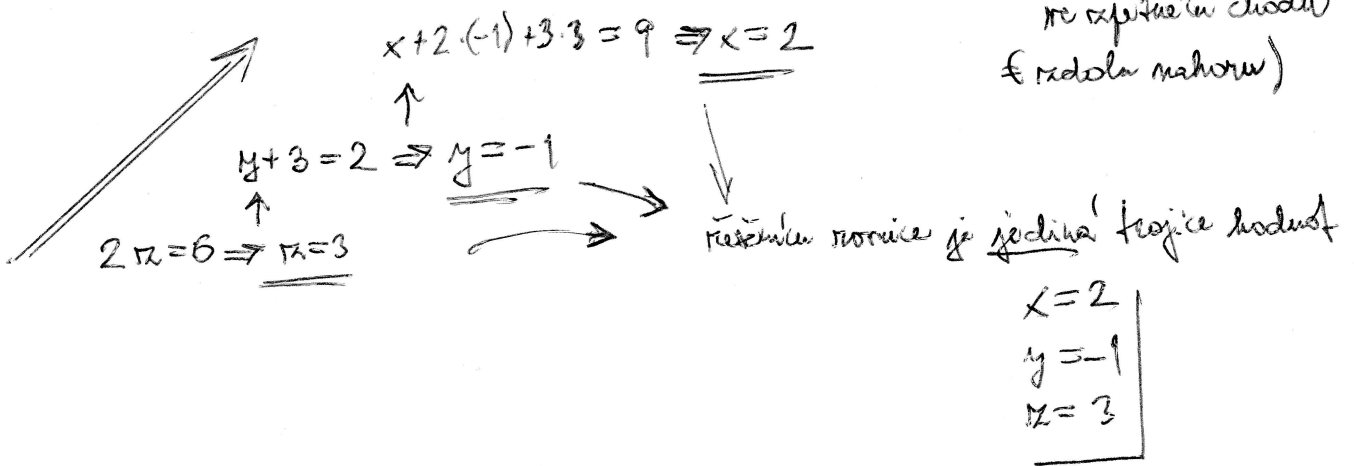 ve zpětném chodu
x+2·(-1)+3·3=9 ⇒ x=2
(zdola nahoru)
↑
y+3=2 ⇒ y=-1
↑
2z=6 ⇒ z=3
řešením rovnice je jediná trojice hodnot
x=2
y=-1
z=3